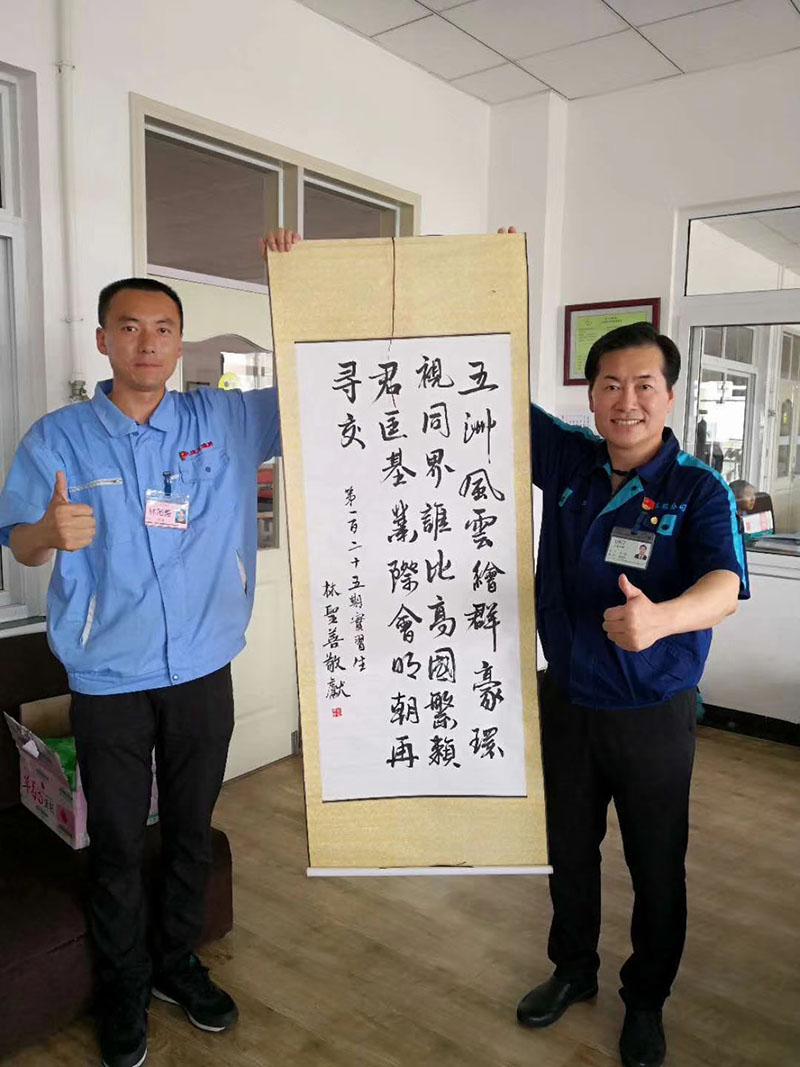 五洲風雲繪群豪環
視同界誰比高國繫賴
君匡基業際會明朝再
尋交
第一百二十五期實習生
林聖善敬獻